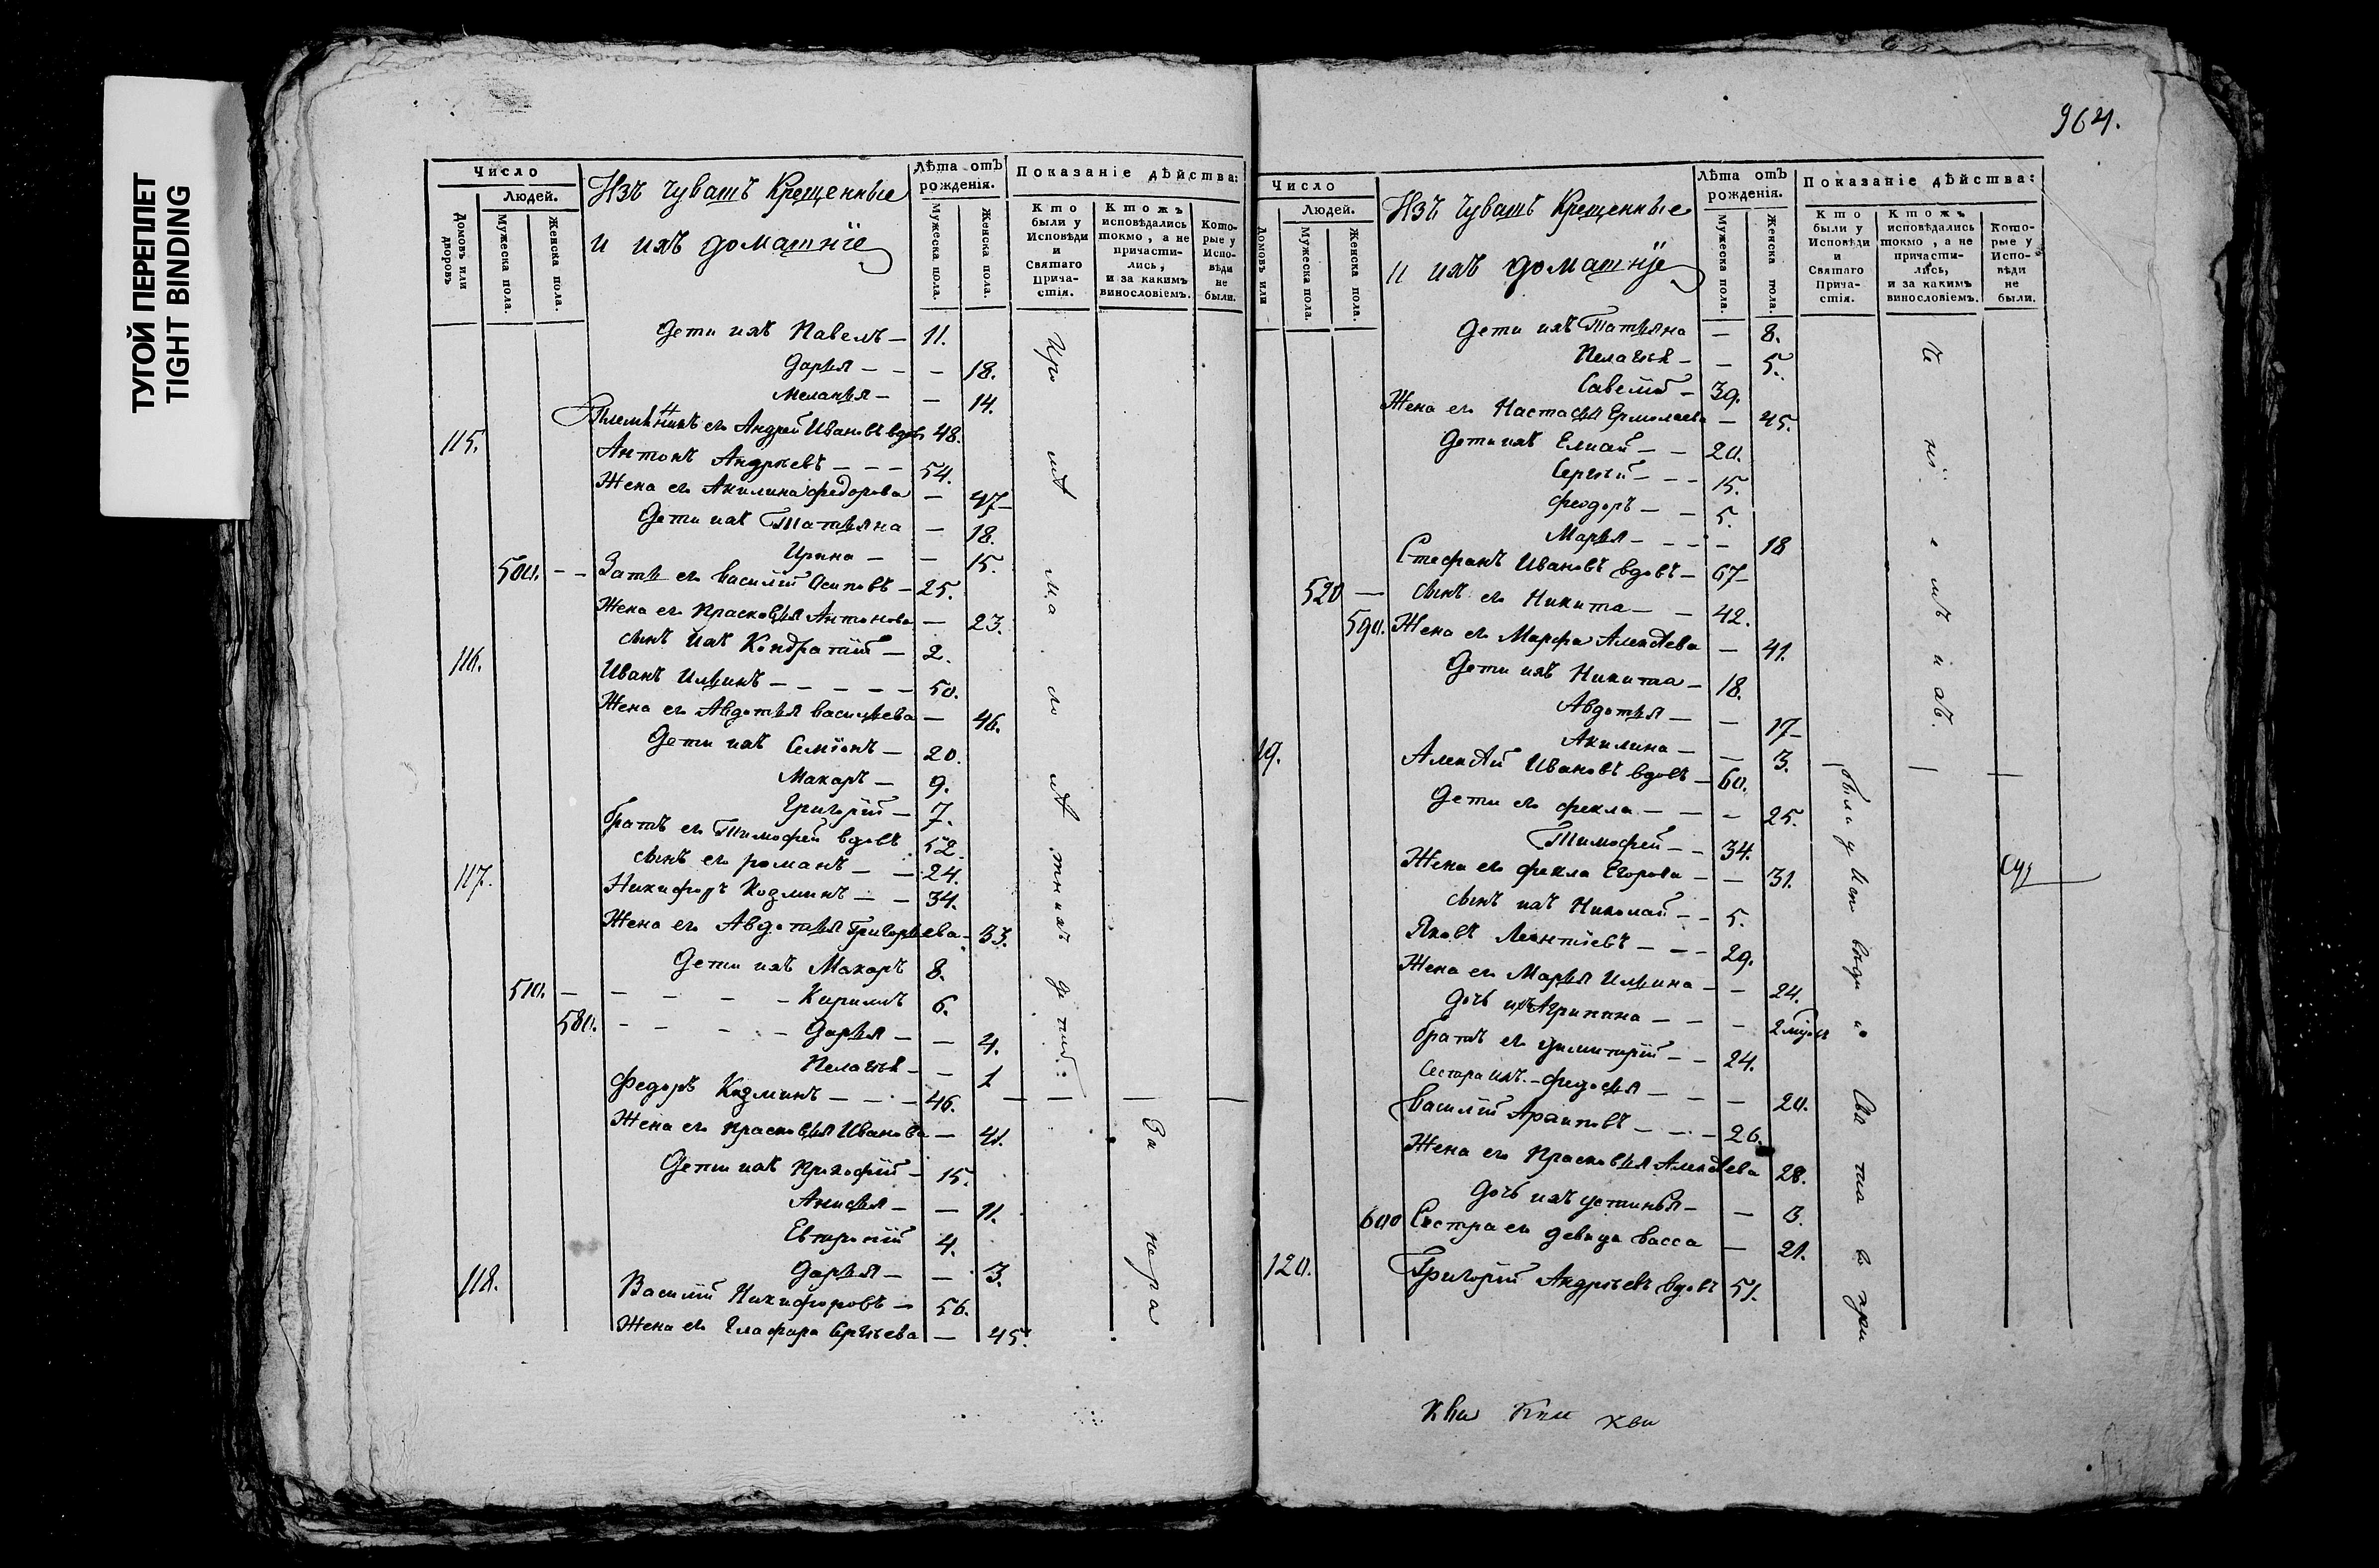 ТУГОЙ ПЕРЕПЛЕТ
TIGHT BINDING
Число
Людей.
Домовъ или дворовъ
Мужеска пола.
Женска пола.
Изъ чувашъ Крещенные
и ихъ домашніе
Лѣта отъ рожденія.
Мужеска пола.
Женска пола.
Показаніе дѣйства:
Кто были у Исповѣди и Святаго Причастія.
Ктожъ исповѣдались токмо, а не причастились, и за какимъ винословіемъ.
Которые у Исповѣди не были.
дети ихъ Павелъ — 11.
Дарья — — — 18.
Меланья — — 14.
Племѣникъ его Андрей Ивановъ вдовъ 48.
115. Антонъ Андреевъ — — — 54.
Жена его Акилина Федорова — 47
Дети ихъ Татьяна — 18.
Ирина — — 15.
500. — — Зать его Василій Осиповъ — 25.
Жена его Прасковья Антонова — 23.
сынъ ихъ Кондратій — 2.
116. Иванъ Ильинъ — — — — — 50.
Жена его Авдотья Васильева — 46.
Дети ихъ Семіонъ — 20.
Макаръ — 9.
Григорій — 7.
братъ его Тимофей вдовъ 52.
сынъ его романъ — — 24.
117. Никифоръ Козминъ — — 34.
Жена его Авдотья Григорьева — 33.
Дети ихъ Макаръ 8.
510. — — — — — Кирилъ 6.
580. — — — — Дарья — — 4.
Пелагія — — 1
Федоръ Козминъ — — — 46.
Жена его Прасковья Иванова — 41.
Дети ихъ Прокофій — 15.
Анисья — — 11.
Евтропій 4.
Дарья — — 3.
118. Василій Никифоровъ — 56.
Жена его Глафира Сергѣева — 45.
За
964.
Число
Людей.
Домовъ или
Мужеска пола.
Женска пола.
Изъ чувашъ Крещенные
и ихъ домашніе
Лѣта отъ рожденія.
Мужеска пола.
Женска пола.
Показаніе дѣйства:
Кто были у Исповѣди и Святаго Причастія.
Ктожъ исповѣдались токмо, а не причастились, и за какимъ винословіемъ.
Которые у Исповѣди не были.
дети ихъ Татьяна — 8.
Пелагія — — 5.
Савелій — 39.
Жена его Настасья Ермолаева — 45.
Дети ихъ Елисей — — 20.
Сергѣй — — — 15.
Феодоръ — — 5.
Марья — — — — 18
Стефанъ Ивановъ вдовъ — 67
520 — сынъ его Никита — — 42.
590. Жена его Марфа Алексѣева — 41.
Дети ихъ Никита — 18.
Авдотья — — 17
Акилина — — 3.
19. Алексѣй Ивановъ вдовъ — 60.
Дети его Фекла — — — 25.
Тимофей — — 34.
Жена его Фекла Егорова — — 31.
сынъ ихъ Николай — — 5.
Яковъ Леонтіевъ — — — 29.
Жена его Марья Ильина — — 24.
дочь ихъ Агрипина — — —
братъ его Димитрій — — 24.
Сестра ихъ — Федосья — — — 20.
Василій Архиповъ — — — 26.
Жена его Прасковья Алексѣева 28.
дочь ихъ устинья — — 3.
600 Сестра ея девица Васса — 21.
120. Григорій Андреевъ вдовъ 51.
были у Исповѣди и Свя та го при